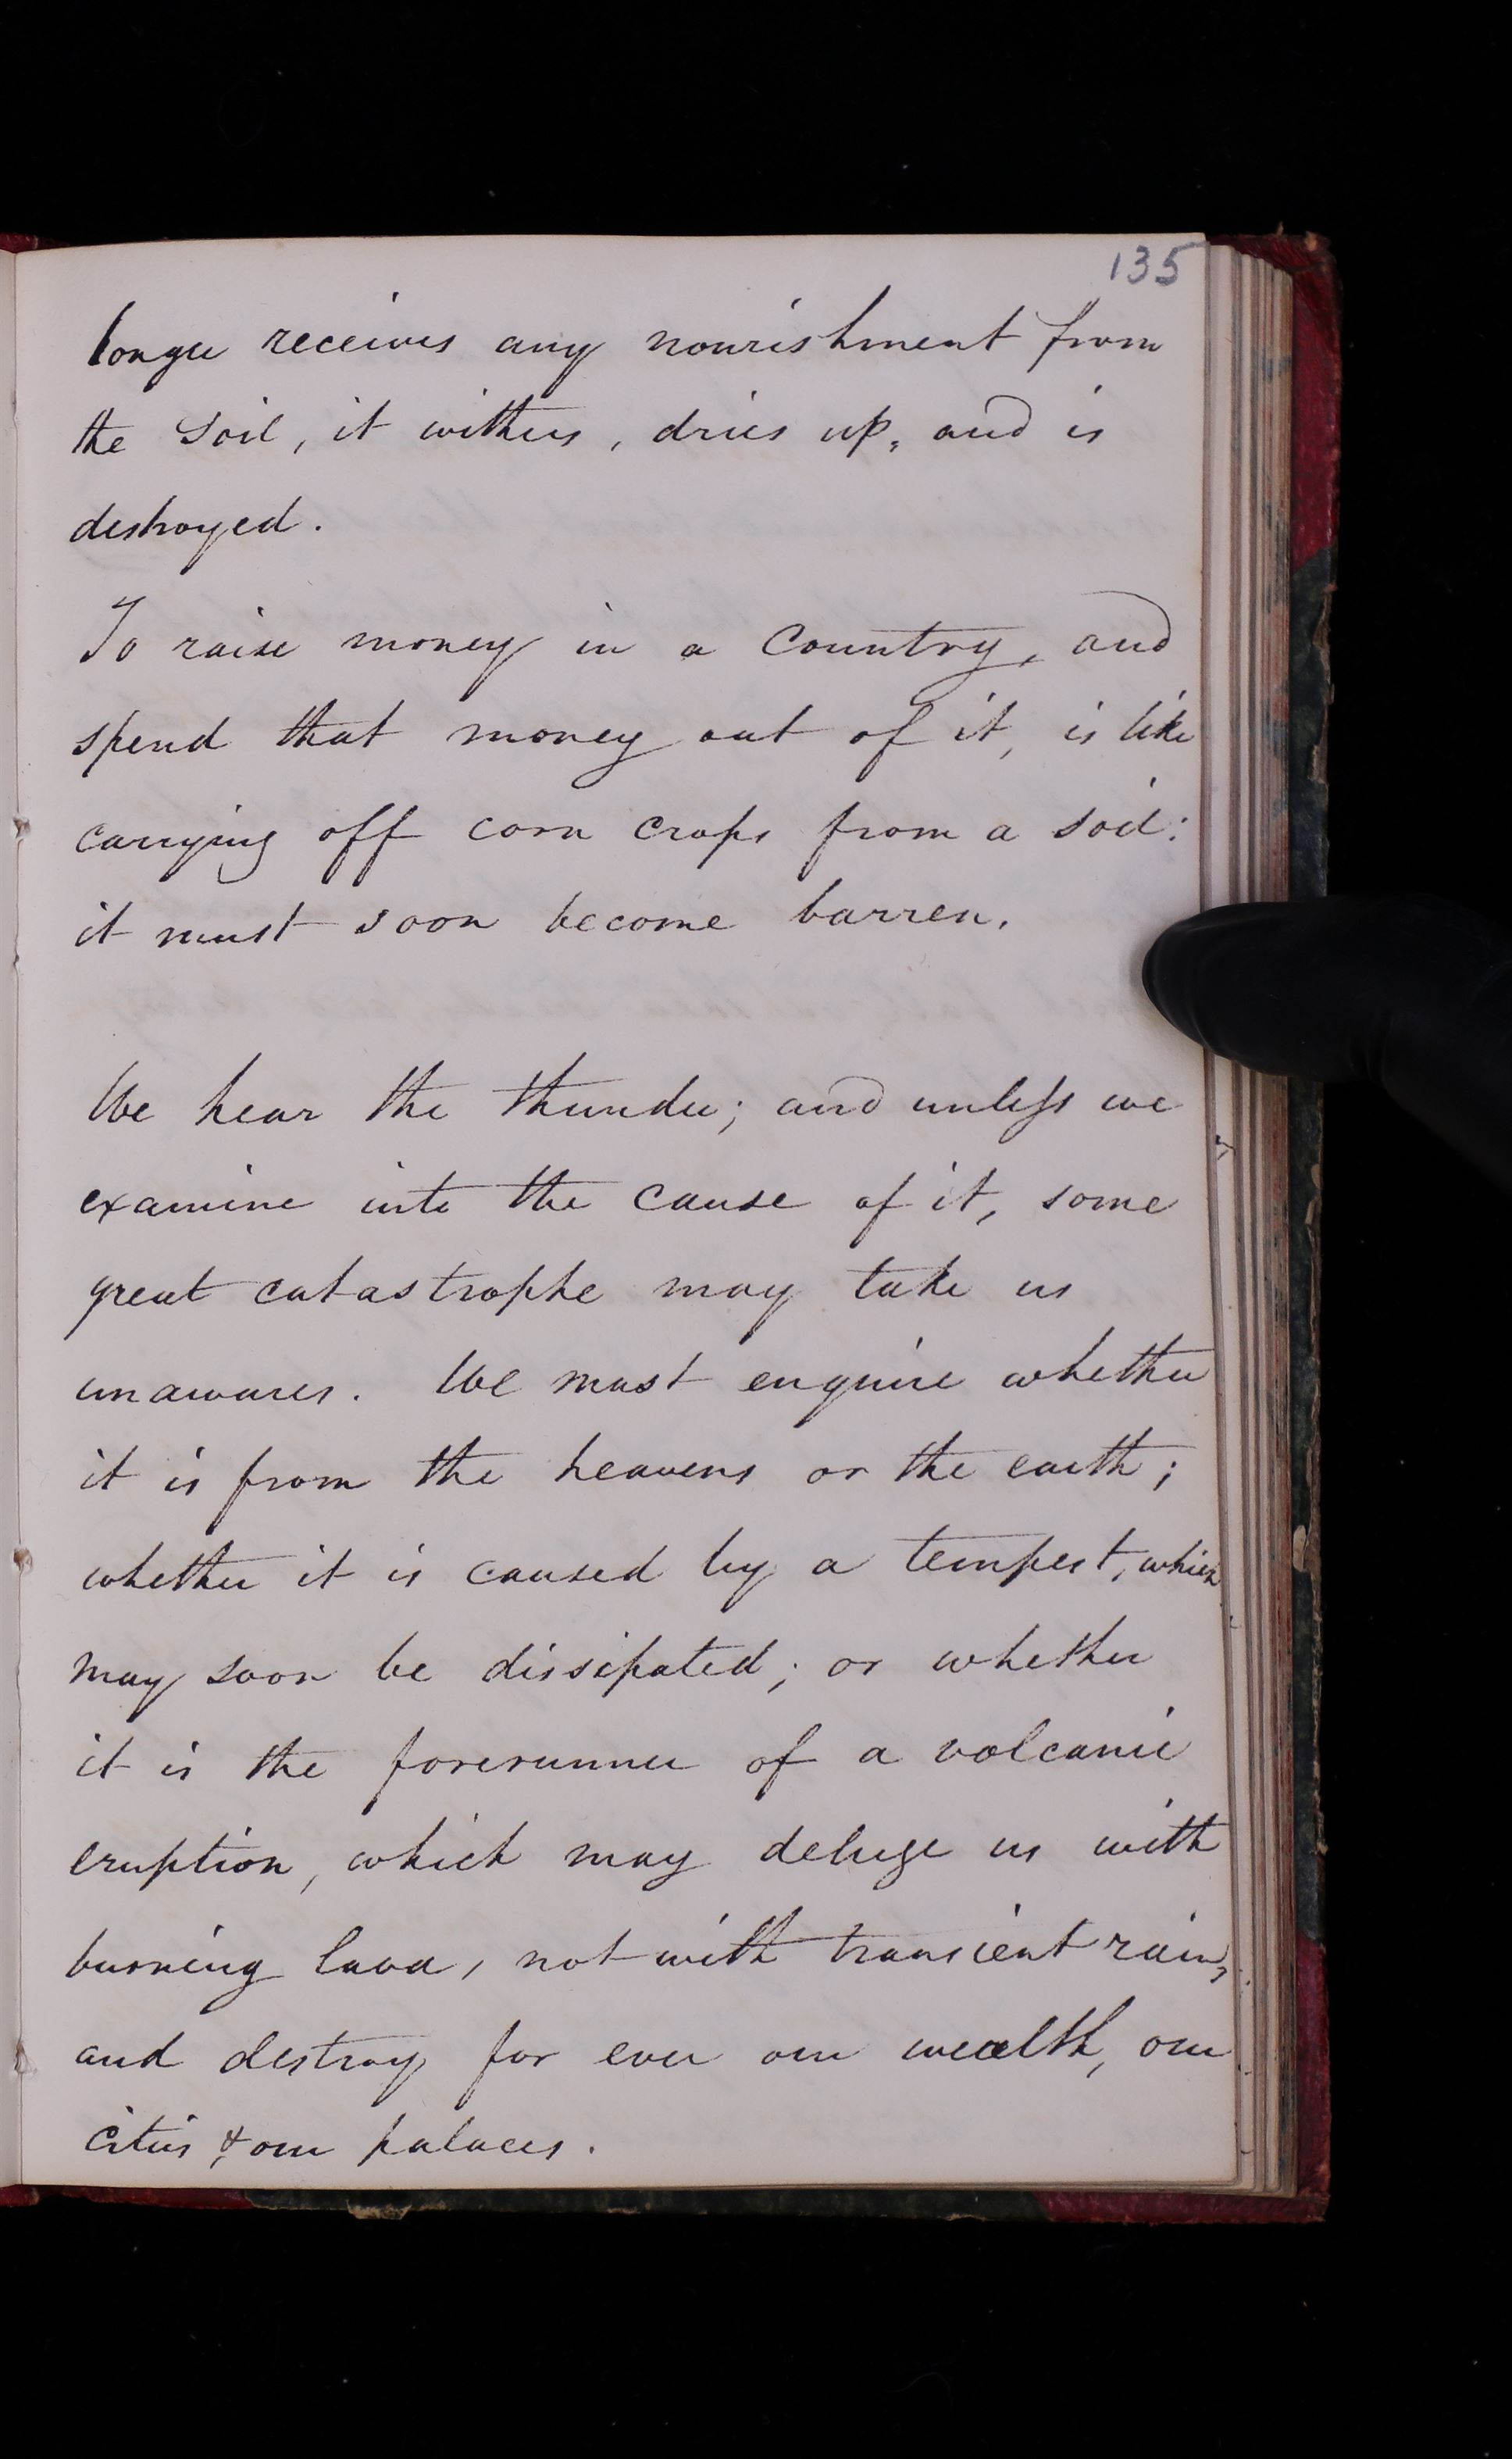 135
longer receives any nourishment from
the soil, it withers, dries up, and is
destroyed.
To raise money in a Country, and
spend that money out of it, is like
carrying off corn crops from a soil:
it must soon become barren.
We hear the thunder; and unless we
examine into the cause of it, some
great catastrophe may take us
unawares. We must enquire whether
it is from the heavens or the earth;
whether it is caused by a tempest, which
may soon be dissipated; or whether
it is the forerunner of a volcanic
eruption, which may deluge us with
burning lava, not with transient rain,
and destroy for ever our wealth, our
cities & our palaces.